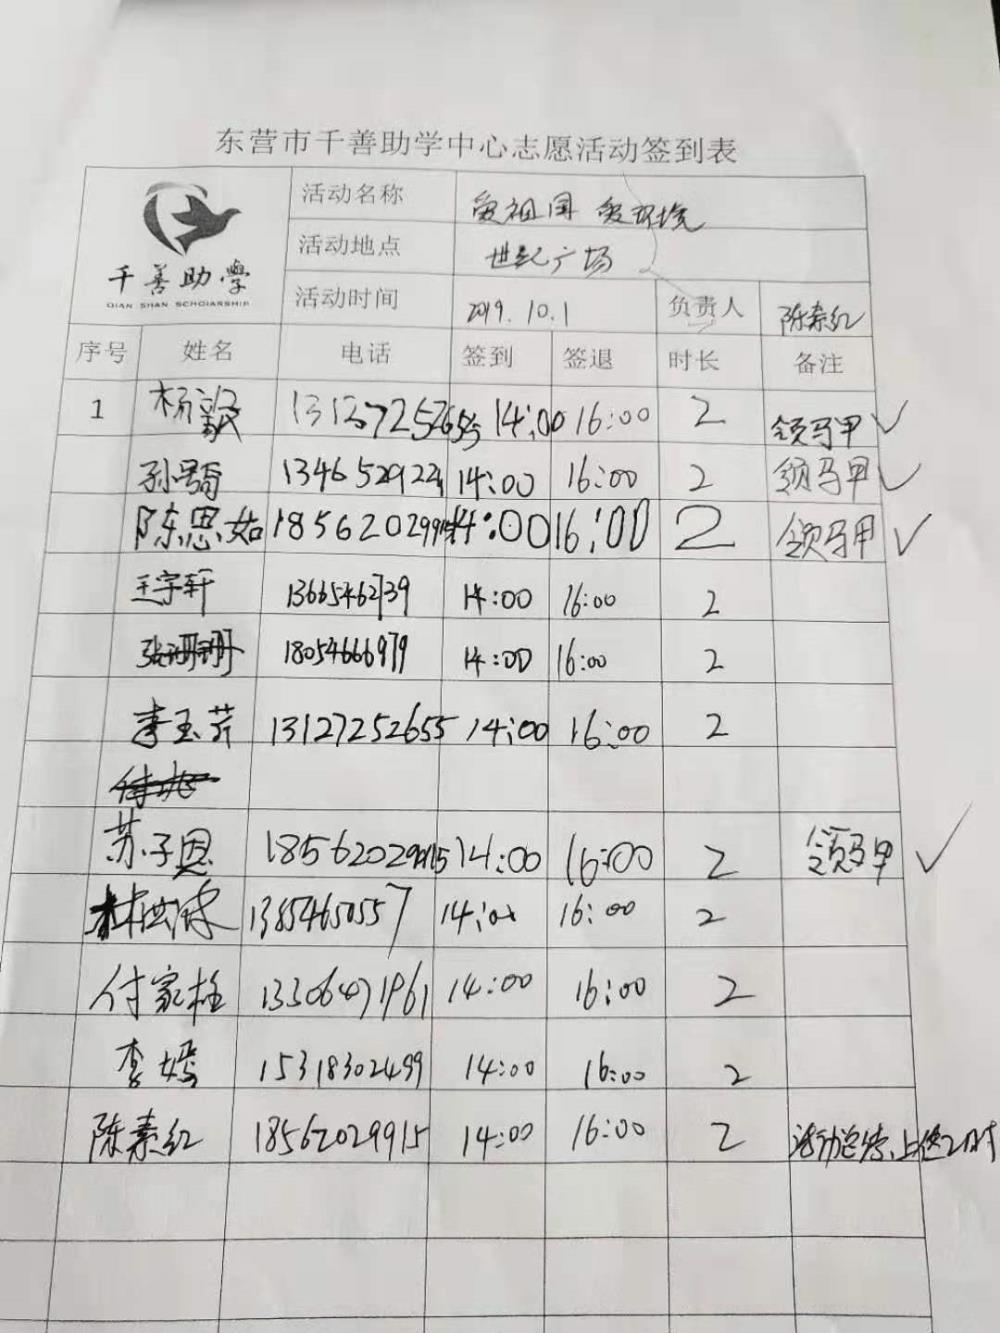 东营市千善助学中心志愿活动签到表
千善助學
QIAN SHAN SCHOLARSHIP
活动名称 爱祖国 爱环境
活动地点 世纪广场
活动时间 2019.10.1 负责人 陈素红
序号 姓名 电话 签到 签退 时长 备注
1 杨毅 13127252655 14:00 16:00 2 领马甲 ✓
14:00 16:00 2 领马甲 ✓
陈思如 18562029915 14:00 16:00 2 领马甲 ✓
王宇轩 13665462739 14:00 16:00 2
张珊珊 18054666979 14:00 16:00 2
李玉芹 13127252655 14:00 16:00 2
苏子恩 18562029915 14:00 16:00 2 领马甲 ✓
13854650557 14:00 16:00 2
付家栓 13306471961 14:00 16:00 2
李嫣 15318302499 14:00 16:00 2
陈素红 18562029915 14:00 16:00 2 活动总结、上传2小时